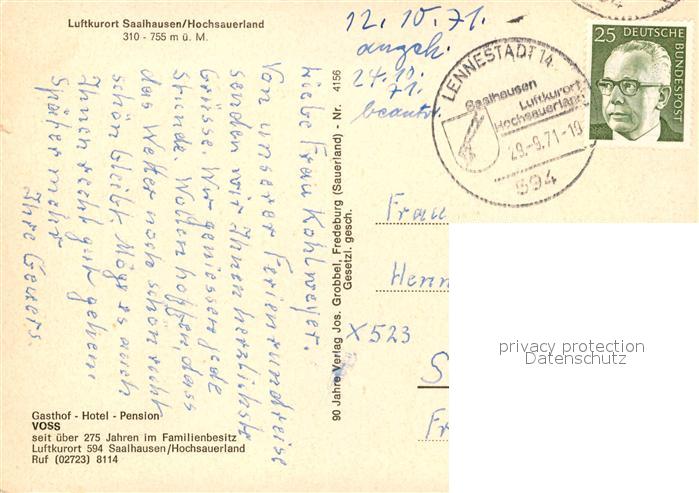 Luftkurort Saalhausen/Hochsauerland
310 - 755 m ü. M.
12. 10. 71.
angek.
24.10.
71.
beantw.
LENNESTADT 14
Saalhausen
Luftkurort
Hochsauerland
29.-9.71-10
594
25 DEUTSCHE
BUNDESPOST
Liebe Frau Kohlmeyer.
Von unserer Ferienrundreise
senden wir Ihnen herzlichste
Grüsse. Wir geniessen jede
Stunde. Wollen hoffen, dass
das Wetter noch schön recht
schön bleibt. Möge es auch
Ihnen recht gut gehen.
Später mehr
Ihre
90 Jahre Verlag Jos. Grobbel, Fredeburg (Sauerland) - Nr. 4156
Gesetzl. gesch.
Frau
Henn
X523
S
Fr
privacy protection
Datenschutz
Gasthof - Hotel - Pension
VOSS
seit über 275 Jahren im Familienbesitz
Luftkurort 594 Saalhausen/Hochsauerland
Ruf (02723) 8114